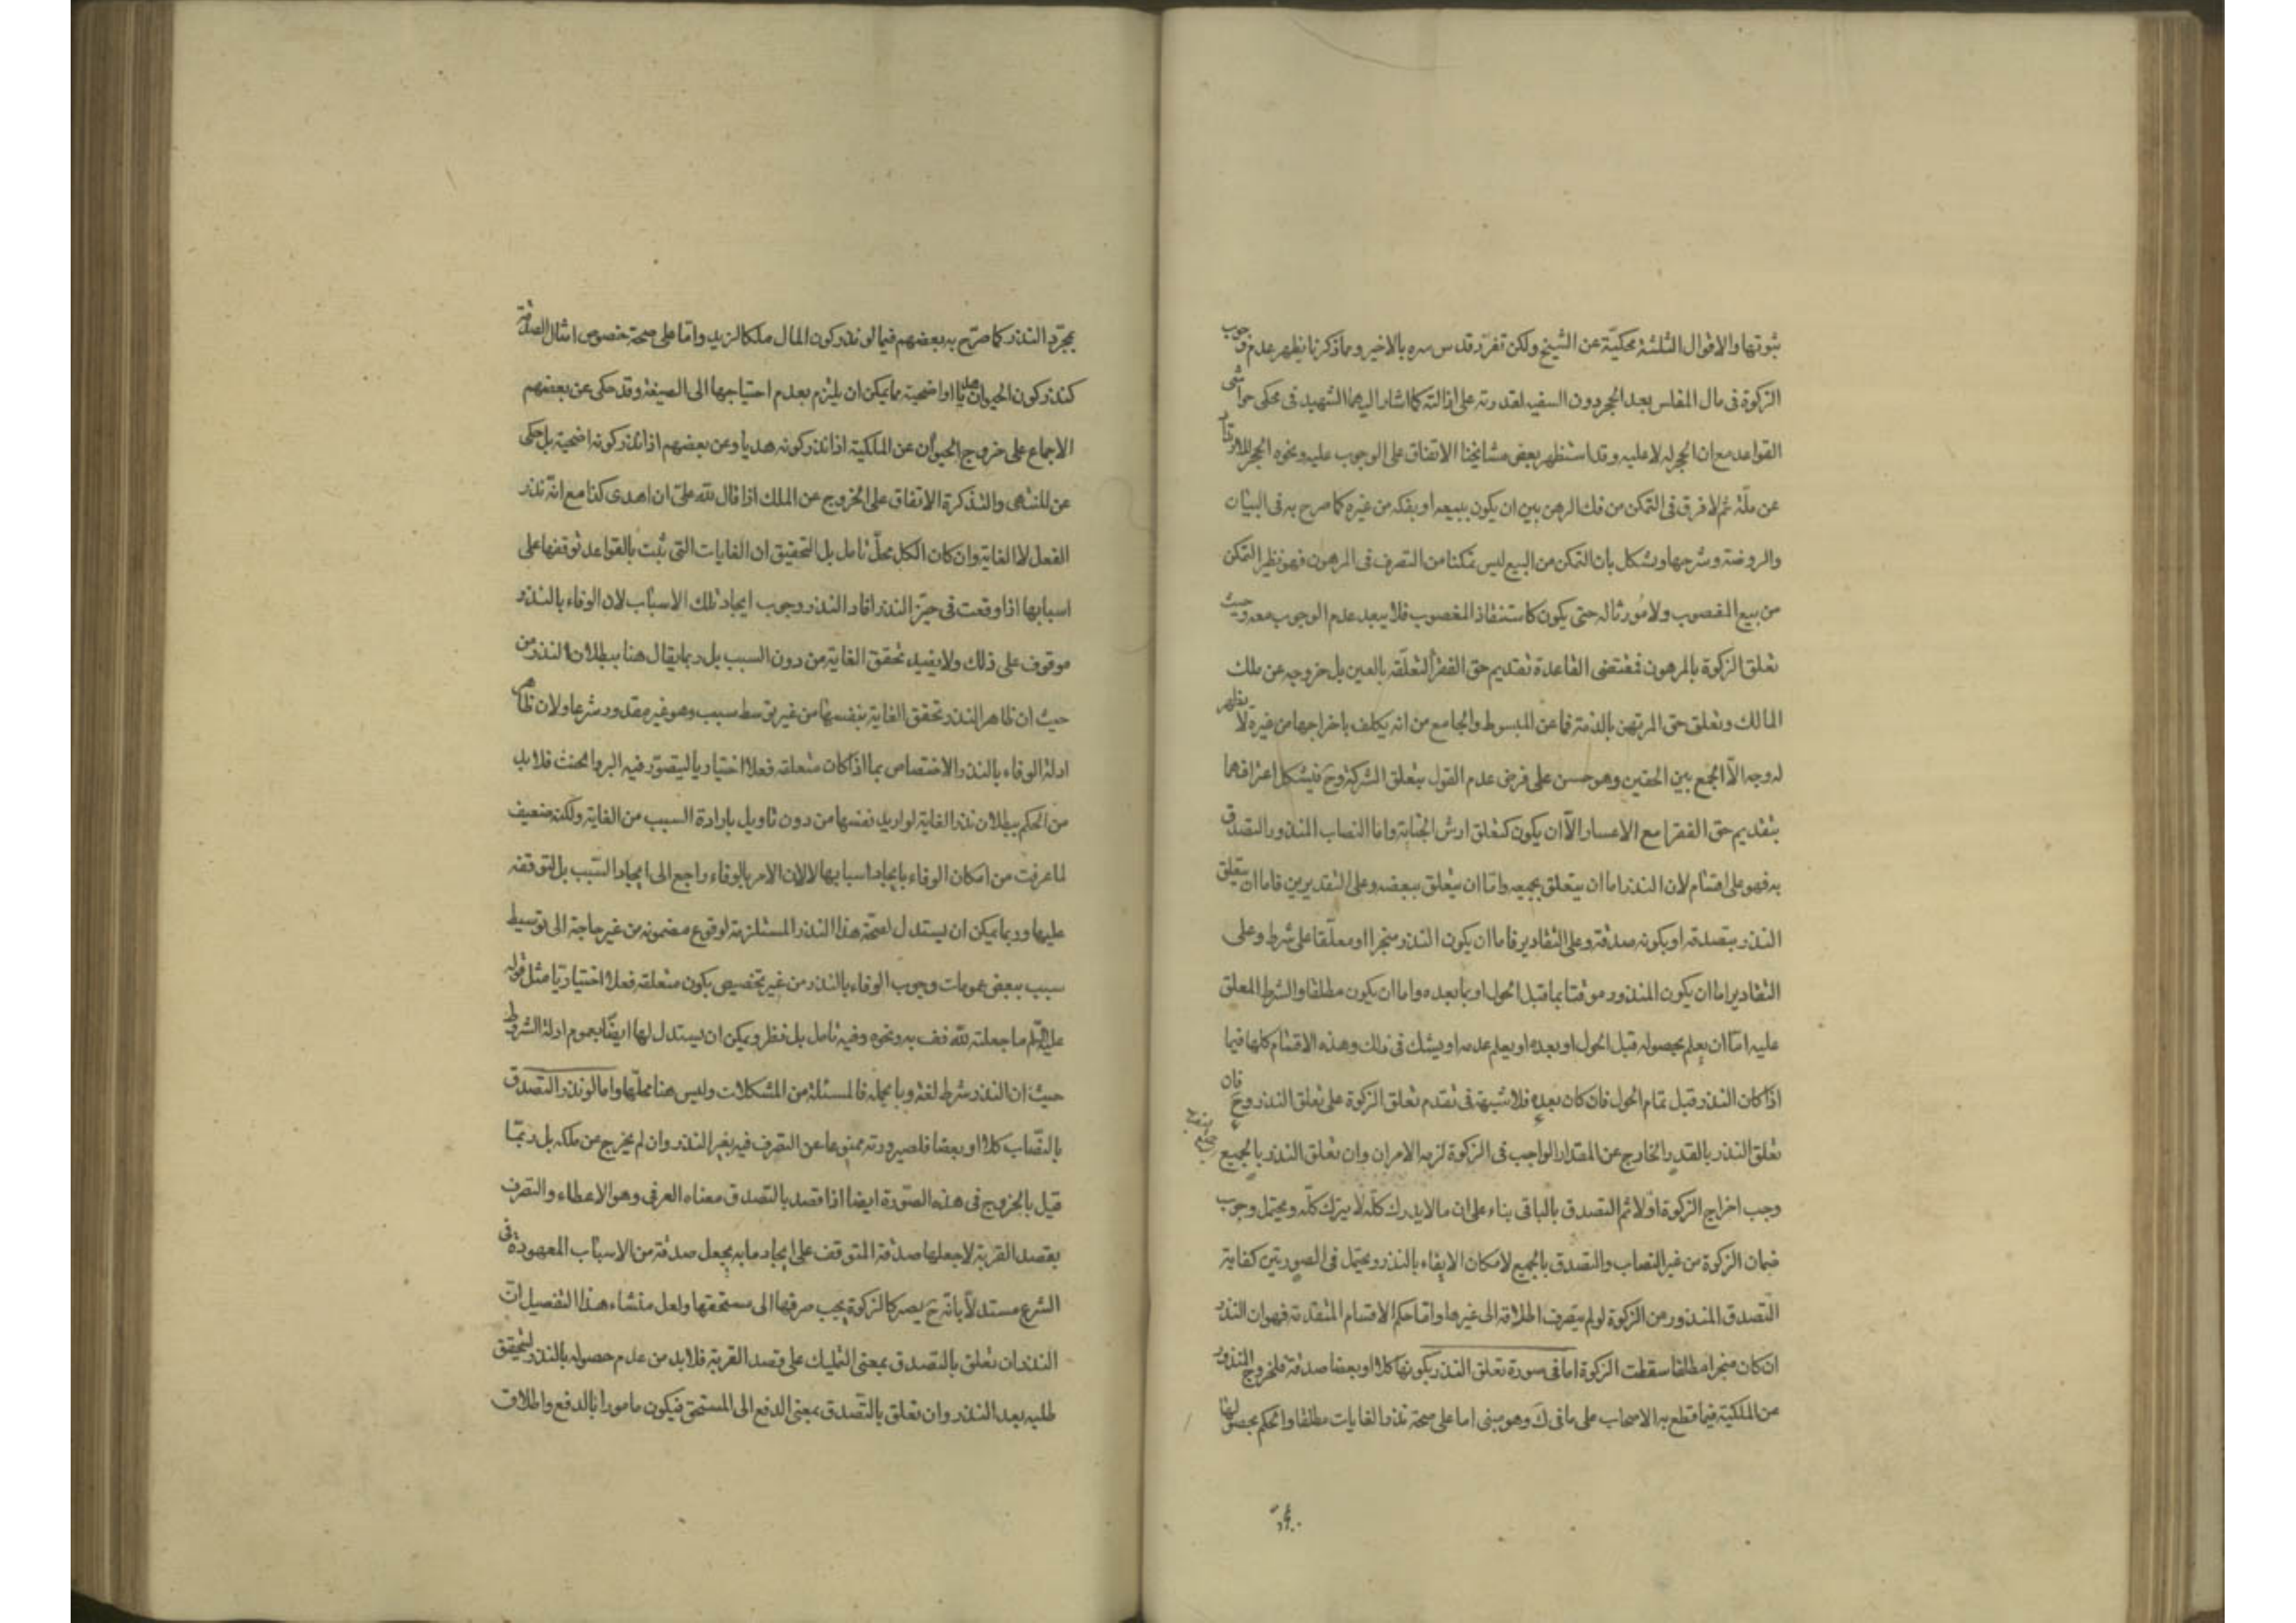 ثبوتها والاقوال الثلثة محكيّة عن الشيخ ولكن تفرّد قدس سره بالاخير ومما ذكرنا يظهر عدم وجوب
الزكوة فى مال المفلس بعد الحجر دون السفيه لقدرته على ازالته كما اشار اليهما الشهيد فى محكى حواشى
القواعد مع ان الحجر له لا عليه وقد استظهر بعض مشايخنا الاتفاق على الوجوب عليه ونحوه الحجر للارتداد
عن ملّة ثم لا فرق فى التمكن من فك الرهن بين ان يكون ببيعه او بفكه من غيره كما صرح به فى البيان
والروضة وشرحها ويشكل بان التمكن من البيع ليس تمكنا من التصرف فى المرهون فهو نظير التمكن
من بيع المغصوب ولا مورثا له حتى يكون كاستنقاذ المغصوب فلا يبعد عدم الوجوب معه وحيث
تعلق الزكوة بالمرهون فمقتضى القاعدة تقديم حق الفقرا لتعلّقه بالعين بل خروجه عن ملك
المالك وتعلق حق المرتهن بالذمة فما عن المبسوط والجامع من انه يكلف باخراجها من غيره لا يظهر
له وجه الّا الجمع بين الحقين وهو حسن على فرض عدم القول بتعلق الشركة وح فيشكل اعترافهما
بتقديم حق الفقرا مع الاعسار الّا ان يكون كتعلق ارش الجناية واما النصاب المنذور التصدق
به فهو على اقسام لان النذر اما ان يتعلق بجميعه واما ان يتعلق ببعضه وعلى التقديرين فاما ان يتعلق
النذر بتصدقه او بكونه صدقة وعلى التقادير فاما ان يكون النذر منجرا او معلّقا على شرط وعلى
التقادير اما ان يكون المنذور موقتا بما قبل الحول او بما بعده واما ان يكون مطلقا والشرط المعلق
عليه امّا ان يعلم بحصوله قبل الحول او بعده او يعلم عدمه او يشك فى ذلك وهذه الاقسام كلها فيما
اذا كان النذر قبل تمام الحول فان كان بعده فلا شبهة فى تقدم تعلق الزكوة على تعلق النذر وح فان
تعلق النذر بالقدر الخارج عن المقدار الواجب فى الزكوة لزمه الامران وان تعلق النذر بالجميع
وجب اخراج الزكوة اولا ثم التصدق بالباقى بناء على ان ما لا يدرك كلّه لا يترك كلّه ويحتمل وجوب
ضمان الزكوة من غير النصاب والتصدق بالجميع لامكان الايفاء بالنذر ويحتمل فى الصورتين كفاية
التصدق المنذور من الزكوة لو لم ينصرف اطلاقه الى غيرها وامّا حكم الاقسام المتقدمة فهو ان النذر
ان كان منجرا مطلقا سقطت الزكوة اما فى صورة تعلق النذر بكونها كلا او بعضا صدقة فلخروج المنذور
عن الملكية فيما قطع به الاصحاب على ما فى ك وهو مبنى اما على صحة نذر الغايات مطلقا والحكم بحصولها
بمجرّد النذر كما صرّح به بعضهم فيما لو نذر كون المال ملكا لزيد وامّا على صحة خصوص امثال الصدقة
كنذر كون الحيوان هديا او اضحية مما يمكن ان يلتزم بعدم احتياجها الى الصيغة وقد حكى عن بعضهم
الاجماع على خروج الحيوان عن الملكية اذا نذر كونه هديا وعن بعضهم اذا نذر كونه اضحية بل حكى
عن المنتهى والتذكرة الاتفاق على الخروج عن الملك اذا قال لله علىّ ان اهدى كذا مع انّه نذر
الفعل لا الغاية وان كان الكل محلّ تامل بل التحقيق ان الغايات التى ثبت بالقواعد توقفها على
اسبابها اذا وقعت فى حيّز النذر افاد النذر وجوب ايجاد تلك الاسباب لان الوفاء بالنذر
موقوف على ذلك ولا يفيد تحقق الغاية من دون السبب بل ربما يقال هنا ببطلان النذر من
حيث ان ظاهر النذر تحقق الغاية بنفسها من غير توسط سبب وهو غير مقدور شرعا ولان ظاهر
ادلة الوفاء بالنذر الاختصاص بما اذا كان متعلقه فعلا اختياريا ليتصوّر فيه البر والحنث فلا بد
من الحكم ببطلان نذر الغاية لو اريد نفسها من دون تاويل بارادة السبب من الغاية ولكنه ضعيف
لما عرفت من امكان الوفاء بايجاد اسبابها لا لان الامر بالوفاء راجع الى ايجاد السّبب بل لتوقفه
عليها وربما يمكن ان يستدل لصحّة هذا النذر المستلزمة لوقوع مضمونه من غير حاجة الى توسيط
سبب ببعض عمومات وجوب الوفاء بالنذر من غير تخصيص بكون متعلقه فعلا اختياريّا مثل قوله
عليه السّلم ما جعلته لله فف به ونحوه وفيه تامل بل نظر ويمكن ان يستدل لها ايضا بعموم ادلة الشروط
حيث ان النذر شرط لغة وبالجملة فالمسئلة من المشكلات وليس هنا محلّها واما لو نذر التصدق
بالنّصاب كلا او بعضا فلصيرورته ممنوعا عن التصرف فيه بغير النذر وان لم يخرج عن ملكه بل ربّما
قيل بالخروج فى هذه الصّورة ايضا اذا قصد بالتصدق معناه العرفى وهو الاعطاء والتصرف
بقصد القربة لا جعلها صدقة المتوقف على ايجاد ما به يجعل صدقة من الاسباب المعهودة فى
الشرع مستدلّا بانّه ح يصير كالزكوة يجب صرفها الى مستحقها ولعل منشاء هذا التفصيل انّ
النذر ان تعلق بالتصدق بمعنى التمليك على قصد القربة فلا بد من عدم حصوله بالنذر لتحقق
طلبه بعد النذر وان تعلق بالتصدق بمعنى الدفع الى المستحق فيكون مامورا بالدفع واطلاق